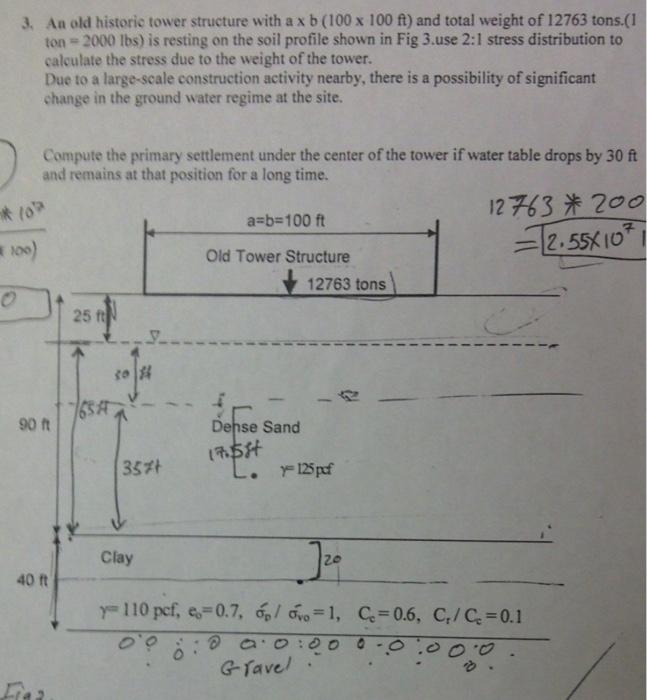 3. An old historic tower structure with a x b (100 x 100 ft) and total weight of 12763 tons.(1
ton = 2000 lbs) is resting on the soil profile shown in Fig 3.use 2:1 stress distribution to
calculate the stress due to the weight of the tower.
Due to a large-scale construction activity nearby, there is a possibility of significant
change in the ground water regime at the site.
Compute the primary settlement under the center of the tower if water table drops by 30 ft
and remains at that position for a long time.
* 10⁷
100)
12763 * 200
= 2.55X10⁷
a=b=100 ft
Old Tower Structure
12763 tons
25 ft
30 ft
65ft
90 ft
Dense Sand
17.5ft
35ft
γ=125 pcf
Clay
20
40 ft
γ=110 pcf, e₀=0.7, σ́p / σ́vo=1, Cc=0.6, Cr/ Cc=0.1
Gravel